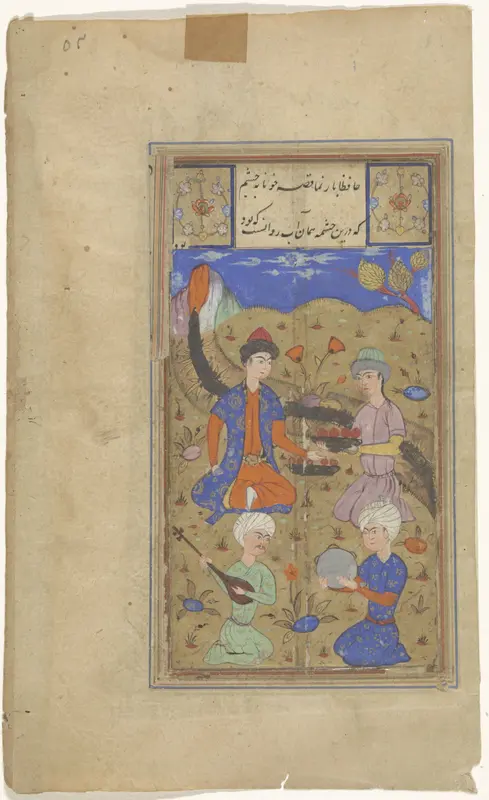 ۵۳
حافظا باز نما قصه خونابه چشم
که درین چشمه همان آب روانست که بود